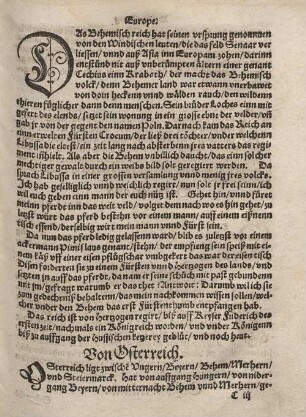 Europe.
DAs Behemisch reich hat seinen vrsprung genommen
von den Windischen leuten/ die das feld Senaar ver
liessen/ vnnd auß Asia inn Europam zohen/ darinn
entstünd nit auß vnberümpten ältern einer genant
Cechius einn Krabath/ der macht das Behemisch
volck/ denn Behemer land war etwann vnerbawet
von dorn hecken vnnd wälden rauch/ den wilden
thieren füglicher dann denn menschen. Sein brüder Loches einn mit
gefert des elends/ setzt sein wonung in ein grossehne der velder/ vñ
gab jr von der gegent den namen Poln. Darnach kam das Reich an
einn erwelten Fürsten Crocum/ der ließ drei töchter/ vnder welchenn
Libussa die eltest/ ein zeit lang nach absterbenn jres vatters das regi
ment inhielt. Als aber die Behem vnbillich daucht/ das einn solcher
mechtiger gewalt durch ein weibs bild solt geregiert werden. Da
sprach Libussa in einer grossen versamlung vnnd menig jres volcks.
Ich hab geselliglich vnnd weichlich regirt/ nun solt jr frei seinn/ ich
will euch geben einn mann der euch nütz ist. Gehet hin/ vnnd füret
mein pferd hin das weit velt/ volget dem nach wo es hin gehet/ zu
letzst würt das pferd bestehn vor einem mann/ auff einem eißnenn
tisch essend/ derselbig wirt mein mann vnnd Fürst sein.
Da nun das pferd ledig gelassenn ward/ blib es zuletst vor einem
ackermann Primislaus genant/ stehn/ der empfieng sein speiß mit ei
nem käß vff einer eisen pflügschar vmbgekert das war der eisen tisch
Disen forderten sie zu einem Fürsten vnd hertzogen des lands/ vnd
setzten jn auff das pferd: da nam er sein schüch mit past gebunden
mit jm/ gefragt warumb er das thet/ Antwort: Darumb wil ich sie
zum gedechtnüß behaltenn/ das mein nachkommen wissen sollen/ wel
cher vnder den Behem das erst Fürstenthumb entpfangen hab.
Das reich ist von hertzogen regirt/ biß auff Keyser Friderich des
ersten zeit/ nachmals ein Königreich worden/ vnd vnder Königenn
biß zu auffgang der hussischen ketzerey geblüt/ vnd noch ist.
Von Osterreich.
OSterreich ligt zwische Vngern/ Beyern/ Behem/ Merhern/
vnd Steiermarck. hat von auffgang Hungern/ von nider-
gang Beyern/ von mitternacht Behem vnnd Merhern/ ge-
C iij